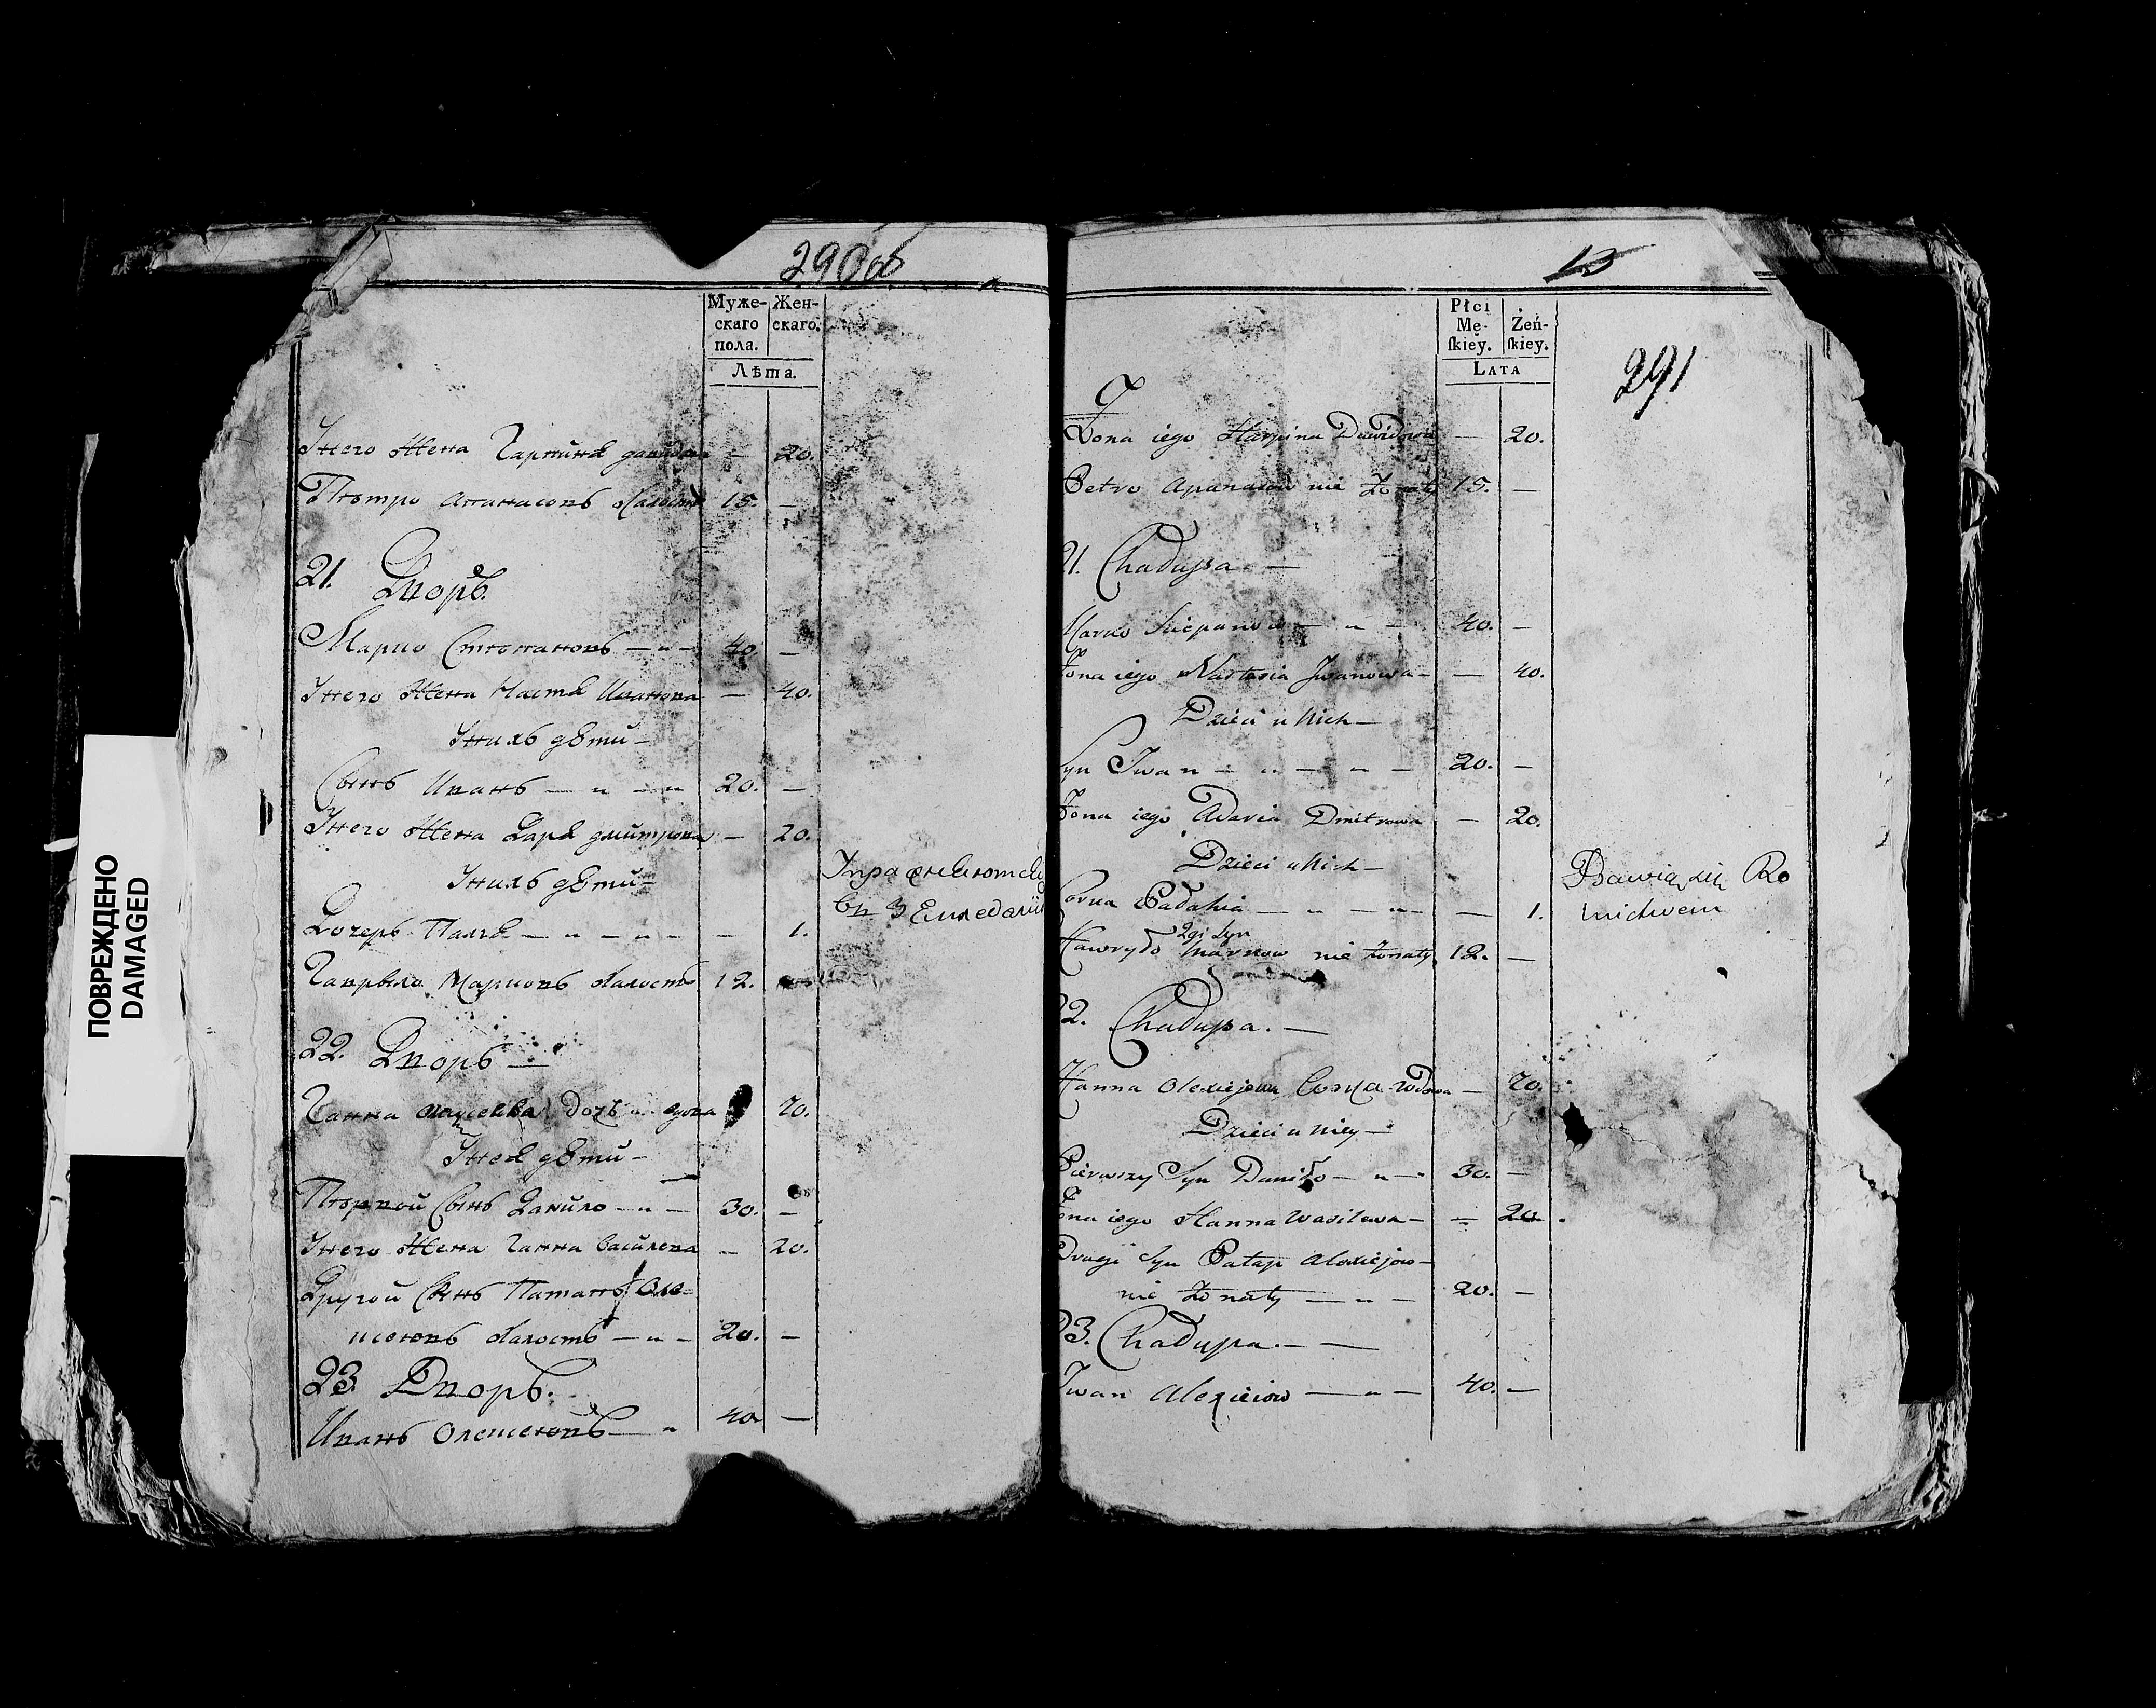 ПОВРЕЖДЕНО
DAMAGED
290 об
Муже-
скаго
пола.
Жен-
скаго.
Лѣта.
Унего Жена Гарпина давидова — 20.
Петро Апанасовъ Халостъ 15. —
21. Дворъ.
Марко Степановъ — „ — 40. —
Унего Жена Настя Иванова — 40.
Унихъ дѣти —
Сынъ Иванъ — „ — „ 20. —
Унего Жена Даря дмитрова — 20.
Унихъ дѣти —
Дочерь — „ — „ — — 1.
Гаврыло Марковъ Халостъ 12.
Упражняютсѧ
въ Земледелии
22. Дворъ —
Ганна дочь вдова 70.
Унея дѣти —
Первой Сынъ Данило — „ — 30. —
Унего Жена Ганна Василева — 20.
Другой Сынъ Патапъ Оле=
ксеевъ Халостъ — „ — 20. —
23. Дворъ.
Иванъ Олексеевъ — „ 40 —
13
Płci
Mę-
ſkiey.
Żeń-
ſkiey.
LATA
291
Żona iego Harpina Dawidowa — 20.
Petro Apanasow nie Żonaty 15. —
21. Chadupa. —
Marko Sciepanow — „ — 40. —
Żona iego Nastasia Jwanowa — — 40.
Dzieci u Nich —
Syn Jwan — „ — „ — 20. —
Żona iego Adaria Dmitrowa — 20.
Dzieci u Nich —
Corka — „ — „ — 1.
2gi Syn
Hawryło Markow nie Żonaty 12. —
Bawią się Ro
lnictwem
22. Chadupa. —
Hanna Olexiejowa Corka Wdowa — 70.
Dzieci u Niey —
Pierwszy Syn Daniło — „ — 30. —
Żona iego Hanna Wasilewa — — 20.
Drugi Syn Patap Alexiejow —
nie Żonaty — „ — 20. —
23. Chadupa. — —
Jwan Alexieiow — „ — 40. —